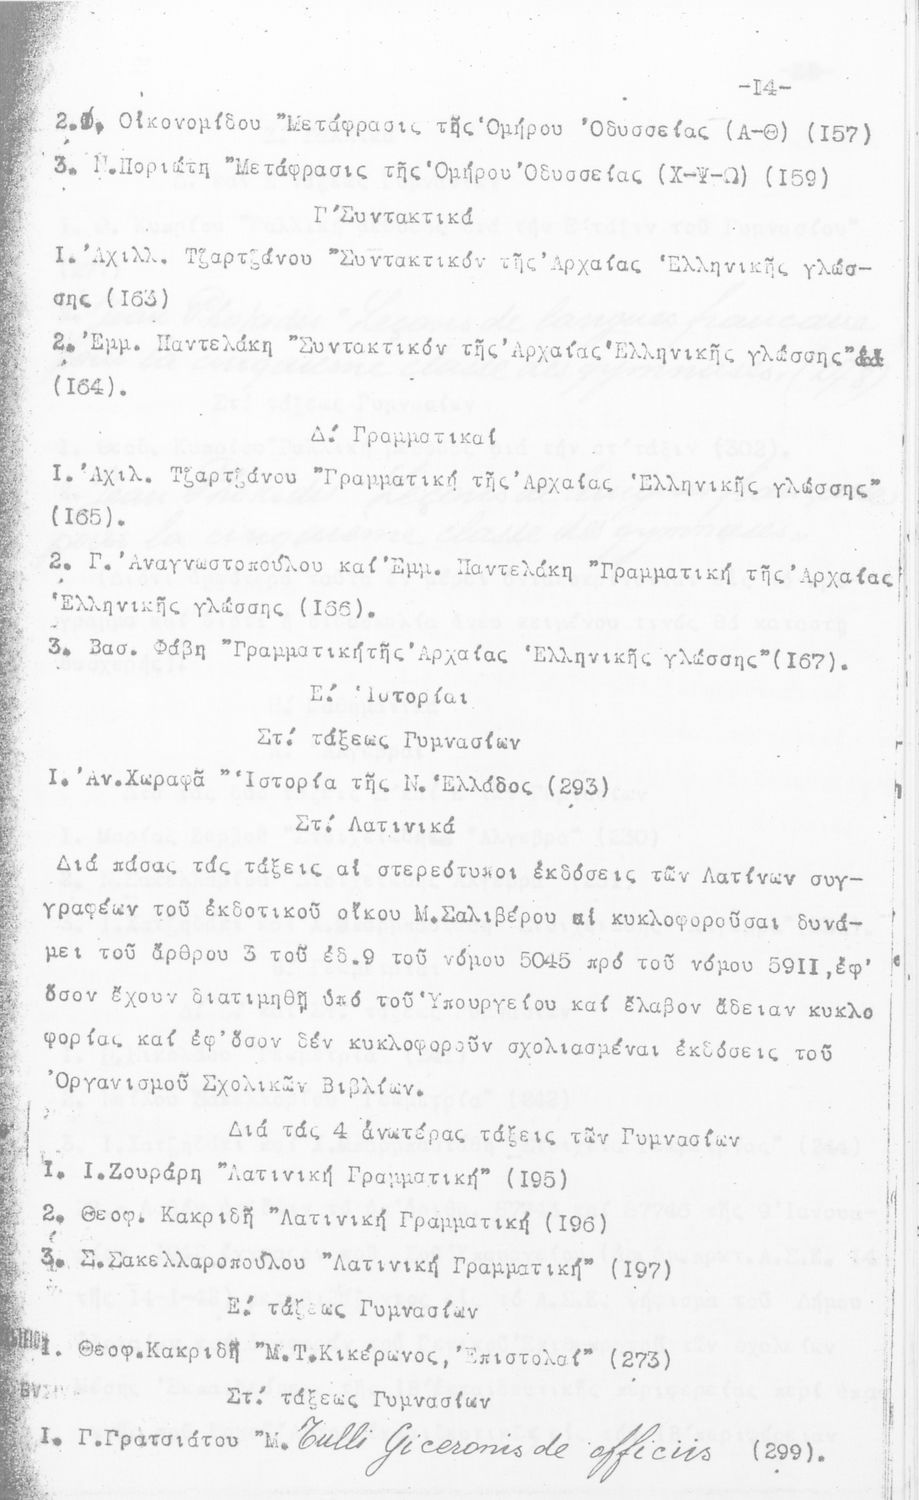 -I4-
2.Φ. Οἰκονομίδου "Μετάφρασις τῆς Ὁμήρου Ὀδυσσείας (Α-Θ) (I57)
3. Ν.Ποριώτη "Μετάφρασις τῆς Ὁμήρου Ὀδυσσείας (Χ-Ψ-Ω) (I59)
Γ΄ Συντακτικά
I. Ἀχιλλ. Τζαρτζάνου "Συντακτικόν τῆς Ἀρχαίας Ἑλληνικῆς γλώσ-
σης (I63)
2. Ἐμμ. Παντελάκη "Συντακτικόν τῆς Ἀρχαίας Ἑλληνικῆς γλώσσης"
(I64).
Δ΄. Γραμματικαί
I. Ἀχιλ. Τζαρτζάνου "Γραμματική τῆς Ἀρχαίας Ἑλληνικῆς γλώσσης"
(I65).
2. Γ. Ἀναγνωστοπούλου καί Ἐμμ. Παντελάκη "Γραμματική τῆς Ἀρχαίας
Ἑλληνικῆς γλώσσης (I66).
3. Βασ. Φάβη "Γραμματική τῆς Ἀρχαίας Ἑλληνικῆς γλώσσης"(I67).
Ε΄. Ἱστορίαι
Στ΄. τάξεως Γυμνασίων
I. Ἀν.Χωραφᾶ "Ἱστορία τῆς Ν. Ἑλλάδος (293)
Στ΄. Λατινικά
Διά πάσας τάς τάξεις αἱ στερεότυποι ἐκδόσεις τῶν Λατίνων συγ-
γραφέων τοῦ ἐκδοτικοῦ οἴκου Μ.Σαλιβέρου αἱ κυκλοφοροῦσαι δυνά-
μει τοῦ ἄρθρου 3 τοῦ ἐδ.9 τοῦ νόμου 5045 πρό τοῦ νόμου 59II,ἐφ'
ὅσον ἔχουν διατιμηθῆ ὑπό τοῦ Ὑπουργείου καί ἔλαβον ἄδειαν κυκλο
φορίας καί ἐφ' ὅσον δέν κυκλοφοροῦν σχολιασμέναι ἐκδόσεις τοῦ
Ὀργανισμοῦ Σχολικῶν Βιβλίων.
Διά τάς 4 ἀνωτέρας τάξεις τῶν Γυμνασίων
I. Ι.Ζουράρη "Λατινική Γραμματική" (I95)
2. Θεοφ. Κακριδῆ "Λατινική Γραμματική (I96)
3. Σ.Σακελλαροπούλου "Λατινική Γραμματική" (I97)
Ε΄. τάξεως Γυμνασίων
I. Θεοφ.Κακριδῆ "Μ.Τ.Κικέρωνος, Ἐπιστολαί" (273)
Στ΄. τάξεως Γυμνασίων
I. Γ.Γρατσιάτου "Μ. Tulli Giceronis de officiis (299).